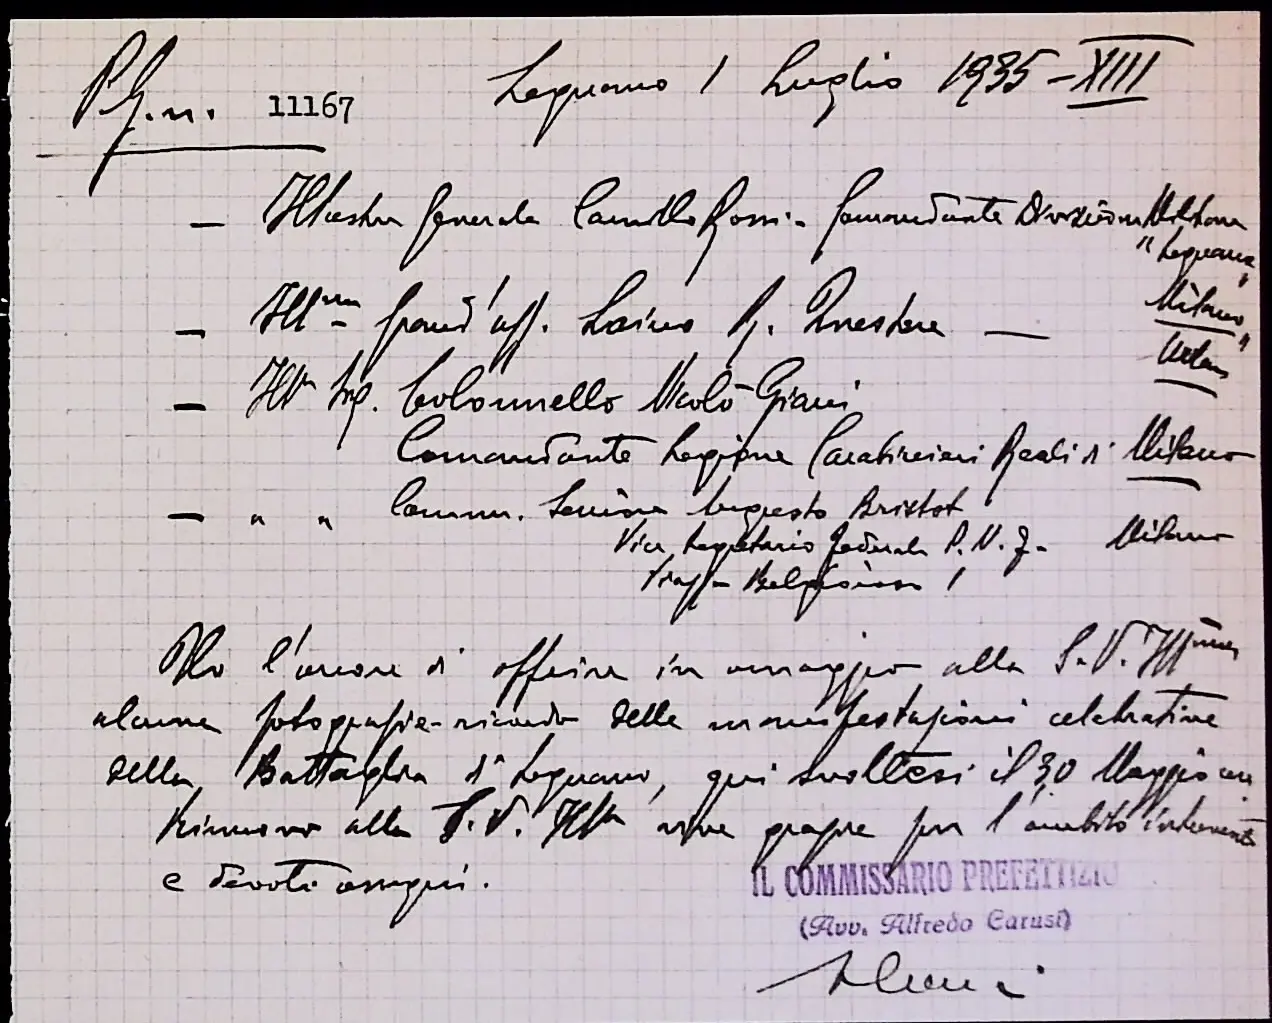 P.G.n. 11167
Legnano 1 Luglio 1935 - XIII
- Illustre Generale Camillo Rossi - Comandante Divisione Militare
"Legnano"
Milano
- Ill.mo Grand'uff. Laino R. Questore — Milano
- Ill. Sig. Colonnello Nicolò Giani
Comandante Legione Carabinieri Reali di Milano
- " " Comm. Augusto Bristot
Vice Segretario Federale P.N.F. - Milano
Belgioioso 1
Ho l'onore di offrire in omaggio alla S.V. Ill.ma
alcune fotografie-ricordo delle manifestazioni celebrative
della Battaglia di Legnano, qui svoltesi il 30 Maggio
Rinnovo alla S.V. Ill.ma vive grazie per l'ambito intervento
e devoti ossequi.
IL COMMISSARIO PREFETTIZIO
(Avv. Alfredo Carusi)